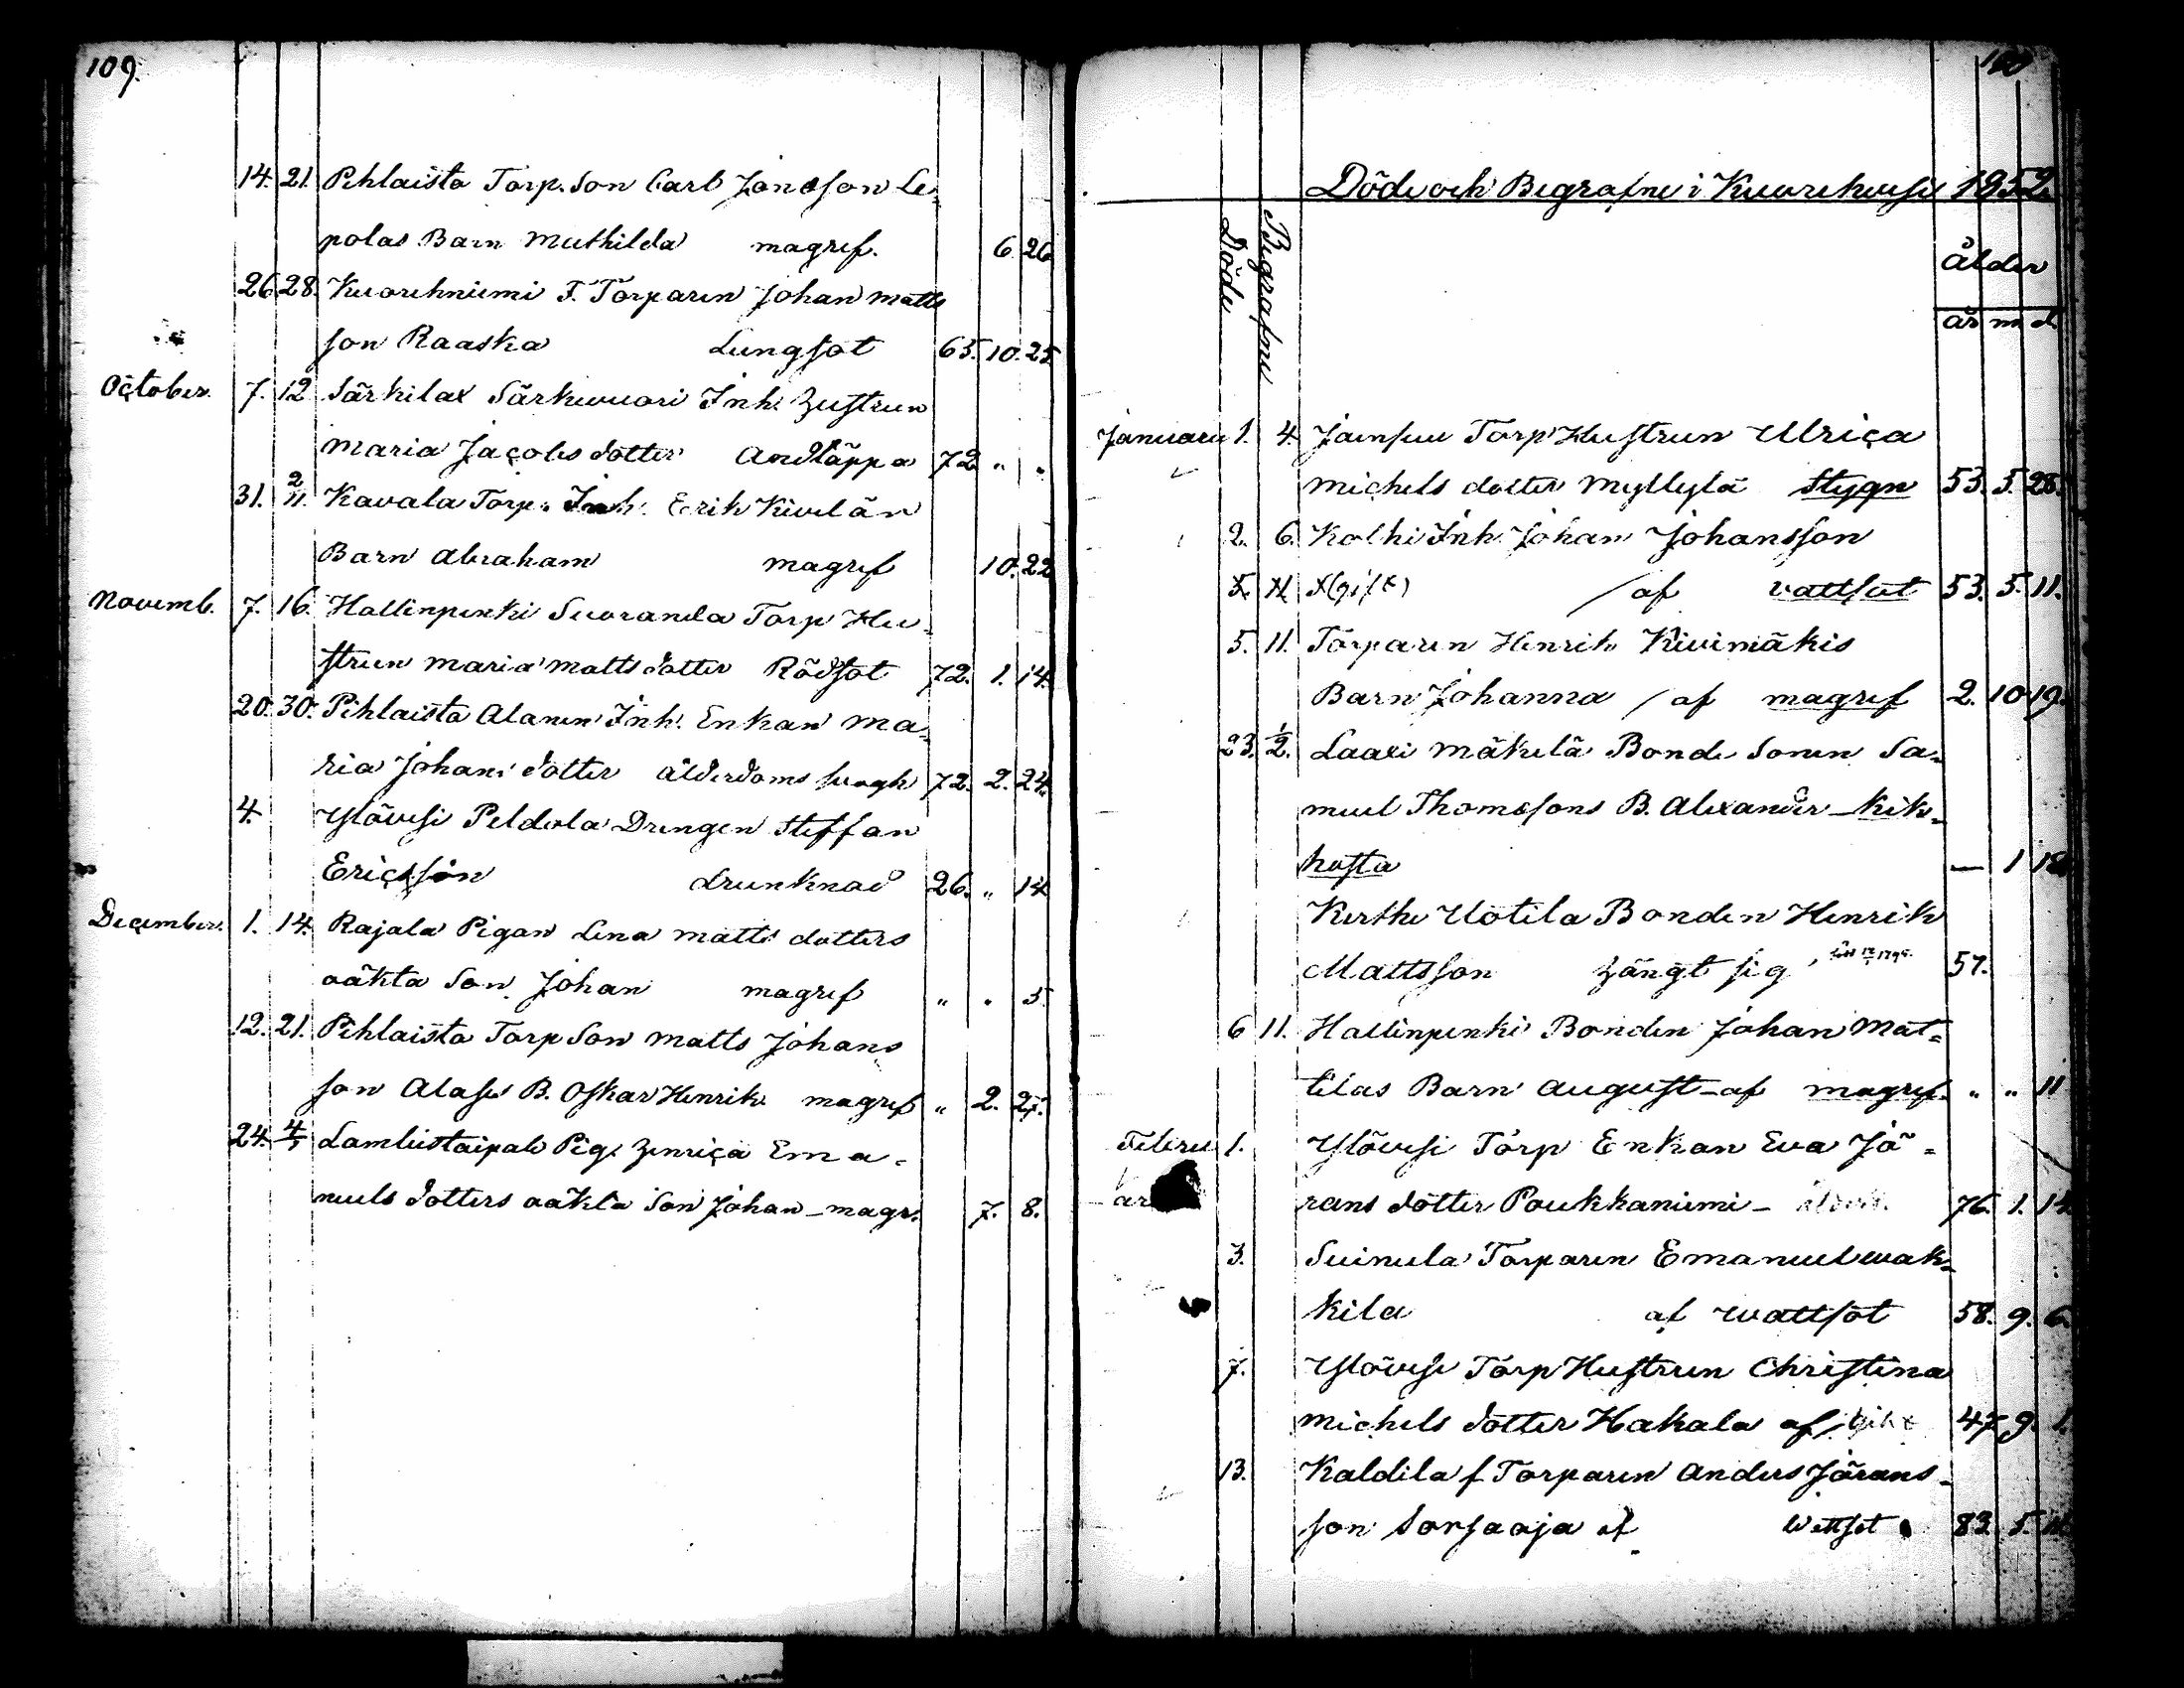 109.
14. 21. Pihlaista Torp. Son Carl Jonesson Le-
polas Barn Mathilda magref. 6 26
26. 28. Kuorehniemi F. Torparen Johan Matts
son Raaska Lungsot 65. 10. 25
October. 7. 12 Särkilax Särkivuori Inh. Hustrun
Maria Jacobsdotter Andtäppa 72 " "
31. 2/11. Kavala Torp. Inh. Erik Kivelän
Barn Abraham magref 10. 22
Novemb. 7. 16. Hallinpenki Suoranda Torp Hu-
strun Maria Mattsdotter Rödsot 72. 1. 14.
20. 30. Pihlaista Alanen Inh. Enkan Ma-
ria Johans dotter ålderdoms 72. 2. 24.
4. Ylövesi Peldola Drengen Steffan
Ericsson drunknad 26. " 14
December. 1. 14. Rajala Pigan Lena Matts dotters
oäkta Son Johan magref " " 5.
12. 21. Pihlaista Torp Son Matts Johans
son B. Oskar Henrik magref " 2. 27.
24. 4/1 Lamlistaipale Pig. Henrica Ema-
nuels dotters oäkta Son Johan – magr. 7. 8.
Döde och Begrafne i Kuorehvesi 1852
Döde Begrafne
ålder
år m d.
Januari 1. 4. Torp Hustrun Ulrica
Michels dotter Myllylä Stygn 53. 5. 28.
2. 6. Kolhi Inh. Johan Johansson
(gift) / af vattsot 53. 5. 11.
5. 11. Torparen Henrik Kivimäkis
Barn Johanna / af magref 2. 10 19.
23. 1/2. Laaxi Mäkelä Bonde Sonen Sa-
muel Thomessons B. Alexander – Kik-
hosta — 1 18
Kerthe Uotila Bonden Henrik
Mattsson hängt sig, 57.
6 11. Hallinpenki Bonden Johan Mat-
tilas Barn August – af magref. " " 11
Februari 1. Ylövesi Torp Enkan Eva Jö-
rans dotter Poukkaniemi – 76. 1. 14
3. Suinula Torparen Emanuel Wak-
kila af wattsot 58. 9. 6.
7. Ylövesi Torp Hustrun Christina
Michels dotter Hakala af 47 9. 1.
13. Kaldila f. Torparen Anders Jörans-
son af Wattsot 83. 5.